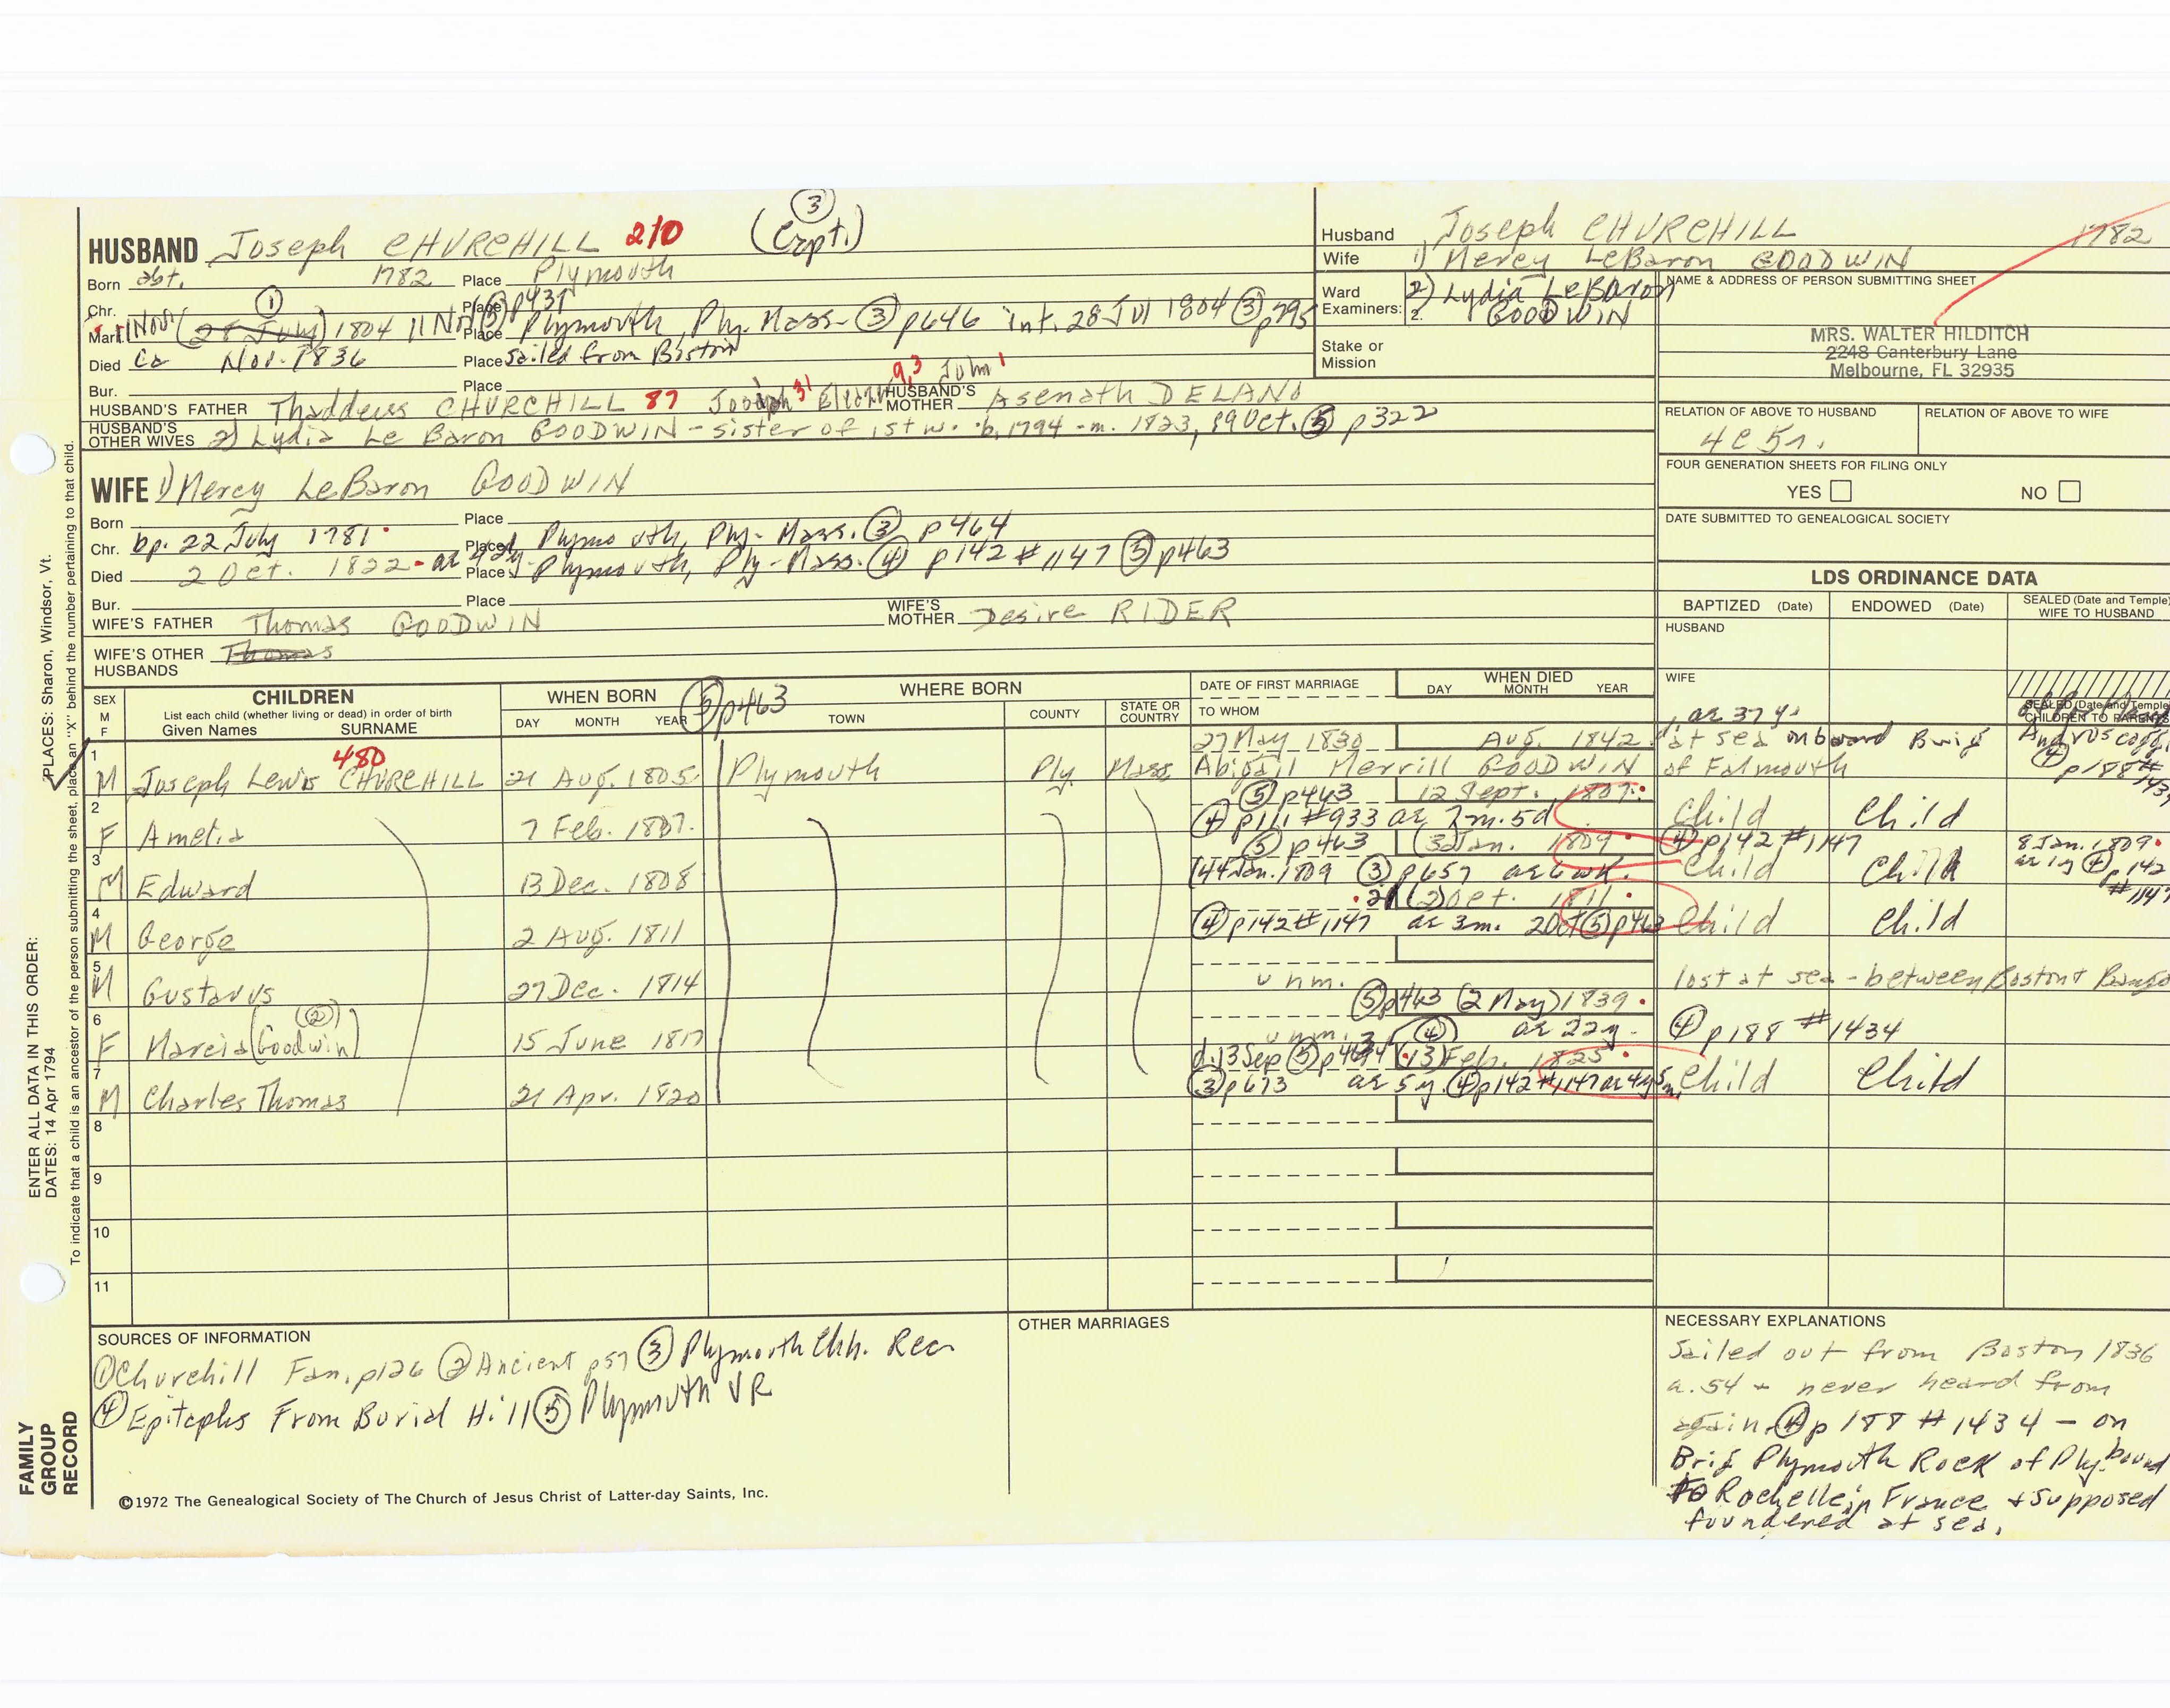 HUSBAND Joseph CHURCHILL 210 (Crpt.) ③
Born abt. 1782 Place Plymouth
Chr. ① Place ⑤ p431
Marr. 11 Nov (28 July) 1804 11 Nov Place Plymouth, Ply. Mass- ③ p646 int. 28 Jul 1804 ③ p295
Died ca Nov. 1836 Place sailed from Boston
Bur. Place
HUSBAND'S FATHER Thaddeus CHURCHILL 87 HUSBAND'S MOTHER Asenath DELANO
HUSBAND'S OTHER WIVES 2) Lydia Le Baron GOODWIN - sister of 1st w. b. 1794 - m. 1823, 19 Oct. ⑤ p322
WIFE 1) Mercy LeBaron GOODWIN
Born Place
Chr. bp. 22 July 1781 Place Plymouth, Ply- Mass. ③ p464
Died 2 Oct. 1822 - ae 42y Place Plymouth, Ply-Mass. ④ p142 #1147 ⑤ p463
Bur. Place
WIFE'S FATHER Thomas GOODWIN WIFE'S MOTHER Desire RIDER
WIFE'S OTHER HUSBANDS Thomas
Husband Joseph CHURCHILL 1782
Wife 1) Mercy LeBaron GOODWIN
2) Lydia LeBaron GOODWIN
Ward
Examiners: 2.
Stake or Mission
NAME & ADDRESS OF PERSON SUBMITTING SHEET
MRS. WALTER HILDITCH
2248 Canterbury Lane
Melbourne, FL 32935
RELATION OF ABOVE TO HUSBAND RELATION OF ABOVE TO WIFE
4C5r.
FOUR GENERATION SHEETS FOR FILING ONLY
YES NO
DATE SUBMITTED TO GENEALOGICAL SOCIETY
LDS ORDINANCE DATA
BAPTIZED (Date) ENDOWED (Date) SEALED (Date and Temple) WIFE TO HUSBAND
HUSBAND
WIFE
SEALED (Date and Temple) CHILDREN TO PARENTS
SEX M F CHILDREN WHEN BORN ⑤ p463 WHERE BORN DATE OF FIRST MARRIAGE WHEN DIED
List each child (whether living or dead) in order of birth
Given Names SURNAME DAY MONTH YEAR TOWN COUNTY STATE OR COUNTRY TO WHOM DAY MONTH YEAR
1 M Joseph Lewis CHURCHILL 480 21 Aug. 1805 Plymouth Ply Mass 27 May 1830 Aug. 1842 ae 37 y.
Abigail Merrill GOODWIN at sea onboard Brig of Falmouth ④ p188 #
2 F Amelia 7 Feb. 1807. ⑤ p463 12 Sept. 1807 Child Child
④ p111 #933 ae 7m. 5d
3 M Edward 13 Dec. 1808 ⑤ p463 (3 Jan. 1809 ④ p142 #1147 8 Jan. 1809
14 Jan. 1809 ③ p657 ae 6wk. Child Child ae 1y ④ p142 #1147
4 M George 2 Aug. 1811 2 Oct. 1811 Child Child
④ p142 #1147 ae 3m. 20ct ⑤ p463
5 M Gustavus 27 Dec. 1814 unm. lost at sea - between Boston +
6 F Marcia (Goodwin) ② 15 June 1817 ⑤ p463 (2 May) 1839
unm. ④ ae 22y. ④ p188 #1434
7 M Charles Thomas 21 Apr. 1820 d. 13 Sep (13) Feb. 1825 Child Child
③ p673 ae 5y. ④ p142 #1147 ae 4y 5m
8
9
10
11
SOURCES OF INFORMATION
① Churchill Fam. p126 ② Ancient p57 ③ Plymouth Chh. Rec
④ Epitaphs From Burial Hill ⑤ Plymouth VR
OTHER MARRIAGES
NECESSARY EXPLANATIONS
Sailed out from Boston 1836
a. 54 + never heard from
again. ④ p188 #1434 - on
Brig Plymouth Rock of Ply. bound
to Rochelle in France + supposed
foundered at sea.
©1972 The Genealogical Society of The Church of Jesus Christ of Latter-day Saints, Inc.
FAMILY GROUP RECORD
ENTER ALL DATA IN THIS ORDER:
DATES: 14 Apr 1794
PLACES: Sharon, Windsor, Vt.
To indicate that a child is an ancestor of the person submitting the sheet, place an "X" behind the number pertaining to that child.